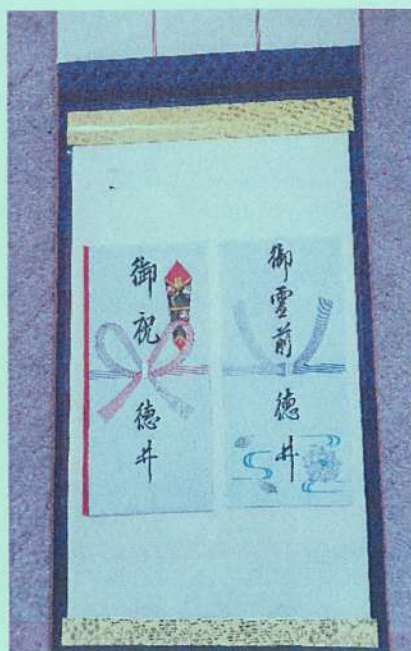 御霊前 徳井
御祝 徳井